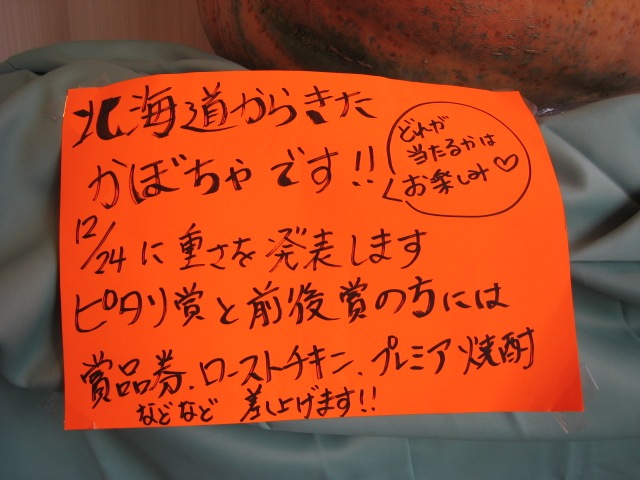 北海道からきた
かぼちゃです!!
どれが
当たるかは
お楽しみ♡
12/24に重さを発表します
ピタリ賞と前後賞の方には
賞品券、ローストチキン、プレミア焼酎
などなど 差し上げます!!